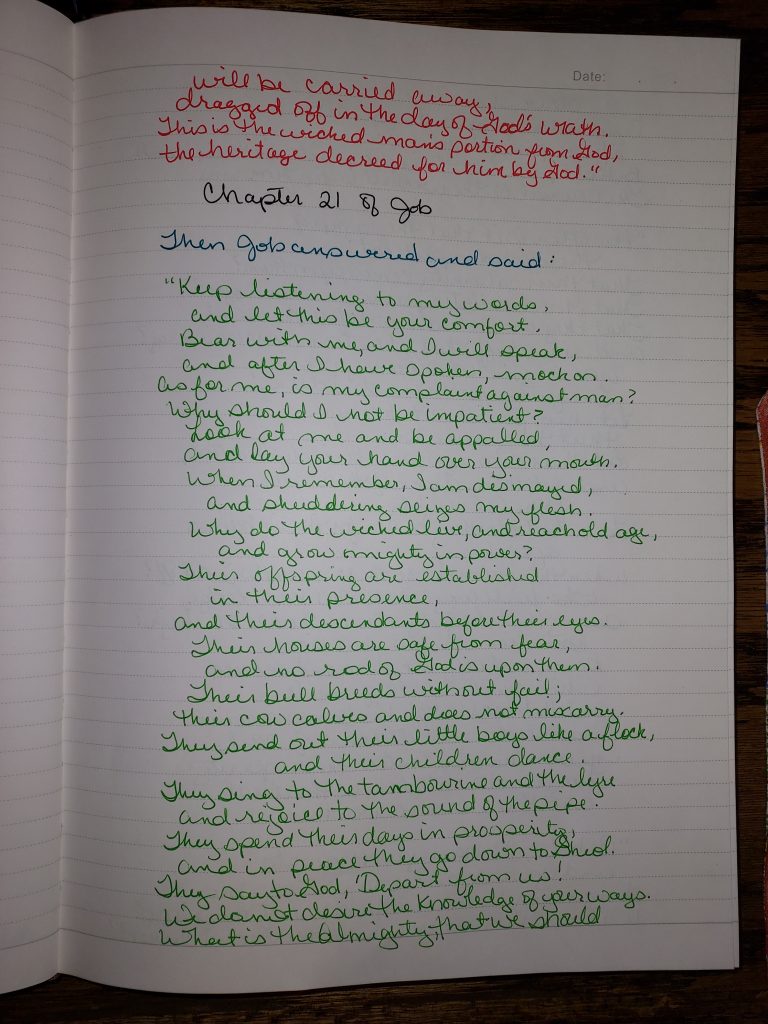 Date:
will be carried away,
dragged off in the day of God's wrath.
This is the wicked man's portion from God,
the heritage decreed for him by God."
Chapter 21 of Job
Then Job answered and said:
"Keep listening to my words,
and let this be your comfort.
Bear with me, and I will speak,
and after I have spoken, mock on.
As for me, is my complaint against man?
Why should I not be impatient?
Look at me and be appalled,
and lay your hand over your mouth.
When I remember, I am dismayed,
and shuddering seizes my flesh.
Why do the wicked live, and reach old age,
and grow mighty in power?
Their offspring are established
in their presence,
and their descendants before their eyes.
Their houses are safe from fear,
and no rod of God is upon them.
Their bull breeds without fail;
their cow calves and does not miscarry.
They send out their little boys like a flock,
and their children dance.
They sing to the tambourine and the lyre
and rejoice to the sound of the pipe.
They spend their days in prosperity,
and in peace they go down to Sheol.
They say to God, 'Depart from us!
We do not desire the knowledge of your ways.
What is the Almighty, that we should